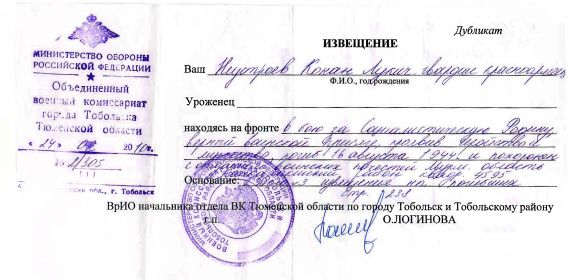 Дубликат
МИНИСТЕРСТВО ОБОРОНЫ
РОССИЙСКОЙ ФЕДЕРАЦИИ
Объединенный
военный комиссариат
города Тобольска
Тюменской области
«24» 2010г.
№ 2/305
обл., г. Тобольск
ИЗВЕЩЕНИЕ
Ваш Неустроев Конан Лукич гвардии красноармеец
Ф.И.О., год рождения
Уроженец
находясь на фронте в бою за Социалистическую Родину,
верный воинской присяге, проявив геройство
и мужество, погиб 16 августа 1944г. и похоронен
область
Основание: извещение на погибших
стр. 238
ВрИО начальника отдела ВК Тюменской области по городу Тобольск и Тобольскому району
г.п. О.ЛОГИНОВА